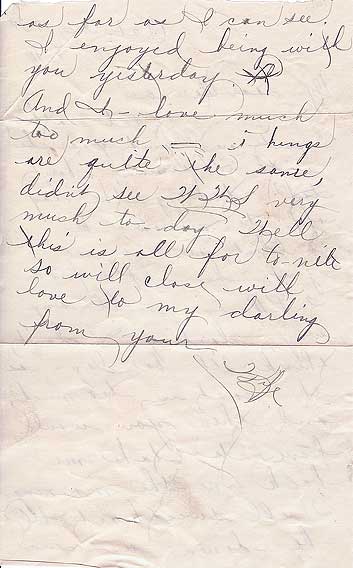 as far as I can see.
I enjoyed being with
you yesterday.
And I love much
too much — things
are quite the same,
didn't see very
much to-day Well
this is all for to-nite
so will close with
love to my darling
from your
Wife